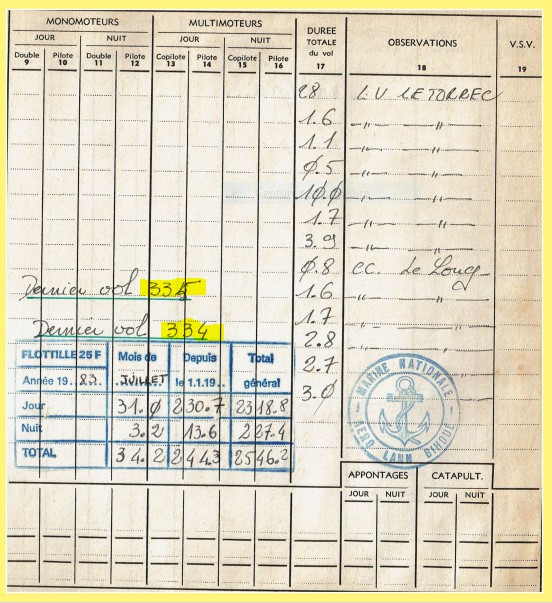 MONOMOTEURS MULTIMOTEURS DUREE TOTALE du vol OBSERVATIONS V.S.V.
JOUR NUIT JOUR NUIT
Double Pilote Double Pilote Copilote Pilote Copilote Pilote
9 10 11 12 13 14 15 16 17 18 19
28 L.V LE TORREC
1.6 -"- -"-
1.1 -"- -"-
0.5 -"- -"-
10.0 -"- -"-
1.7 -"- -"-
3.9 -"- -"-
0.8 CC. Le Long
Dernier vol 335
1.6 -"- -"-
1.7 -"- -"-
Dernier vol 334
2.8 -"- -"-
2.7
3.0
FLOTTILLE 25F Mois de Depuis Total
Année 19.83. JUILLET le 1.1.19.. général
Jour 31.0 230.7 2318.8
Nuit 3.2 13.6 227.4
TOTAL 34.2 244.3 2546.2
MARINE NATIONALE
AERO LANN BIHOUE
APPONTAGES CATAPULT.
JOUR NUIT JOUR NUIT